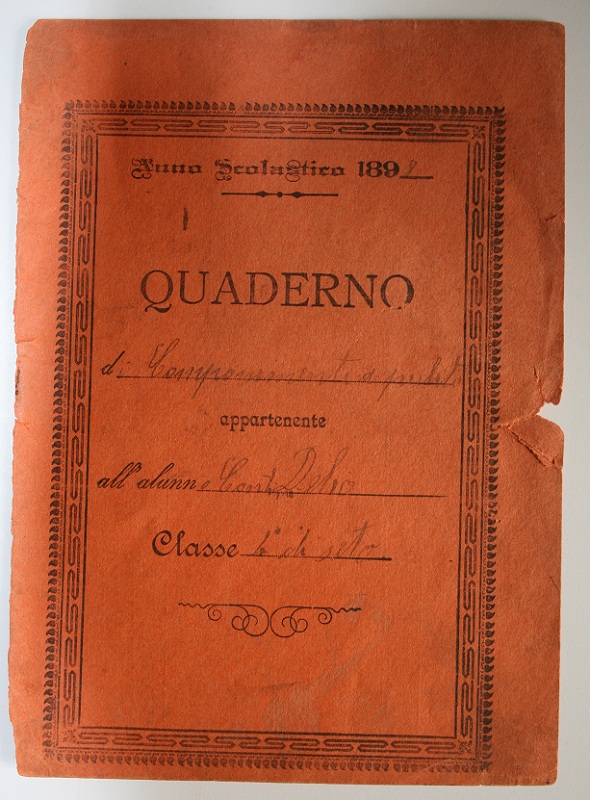 Anno Scolastico 1898
QUADERNO
di Componimenti
appartenente
all'alunno Conti
Classe